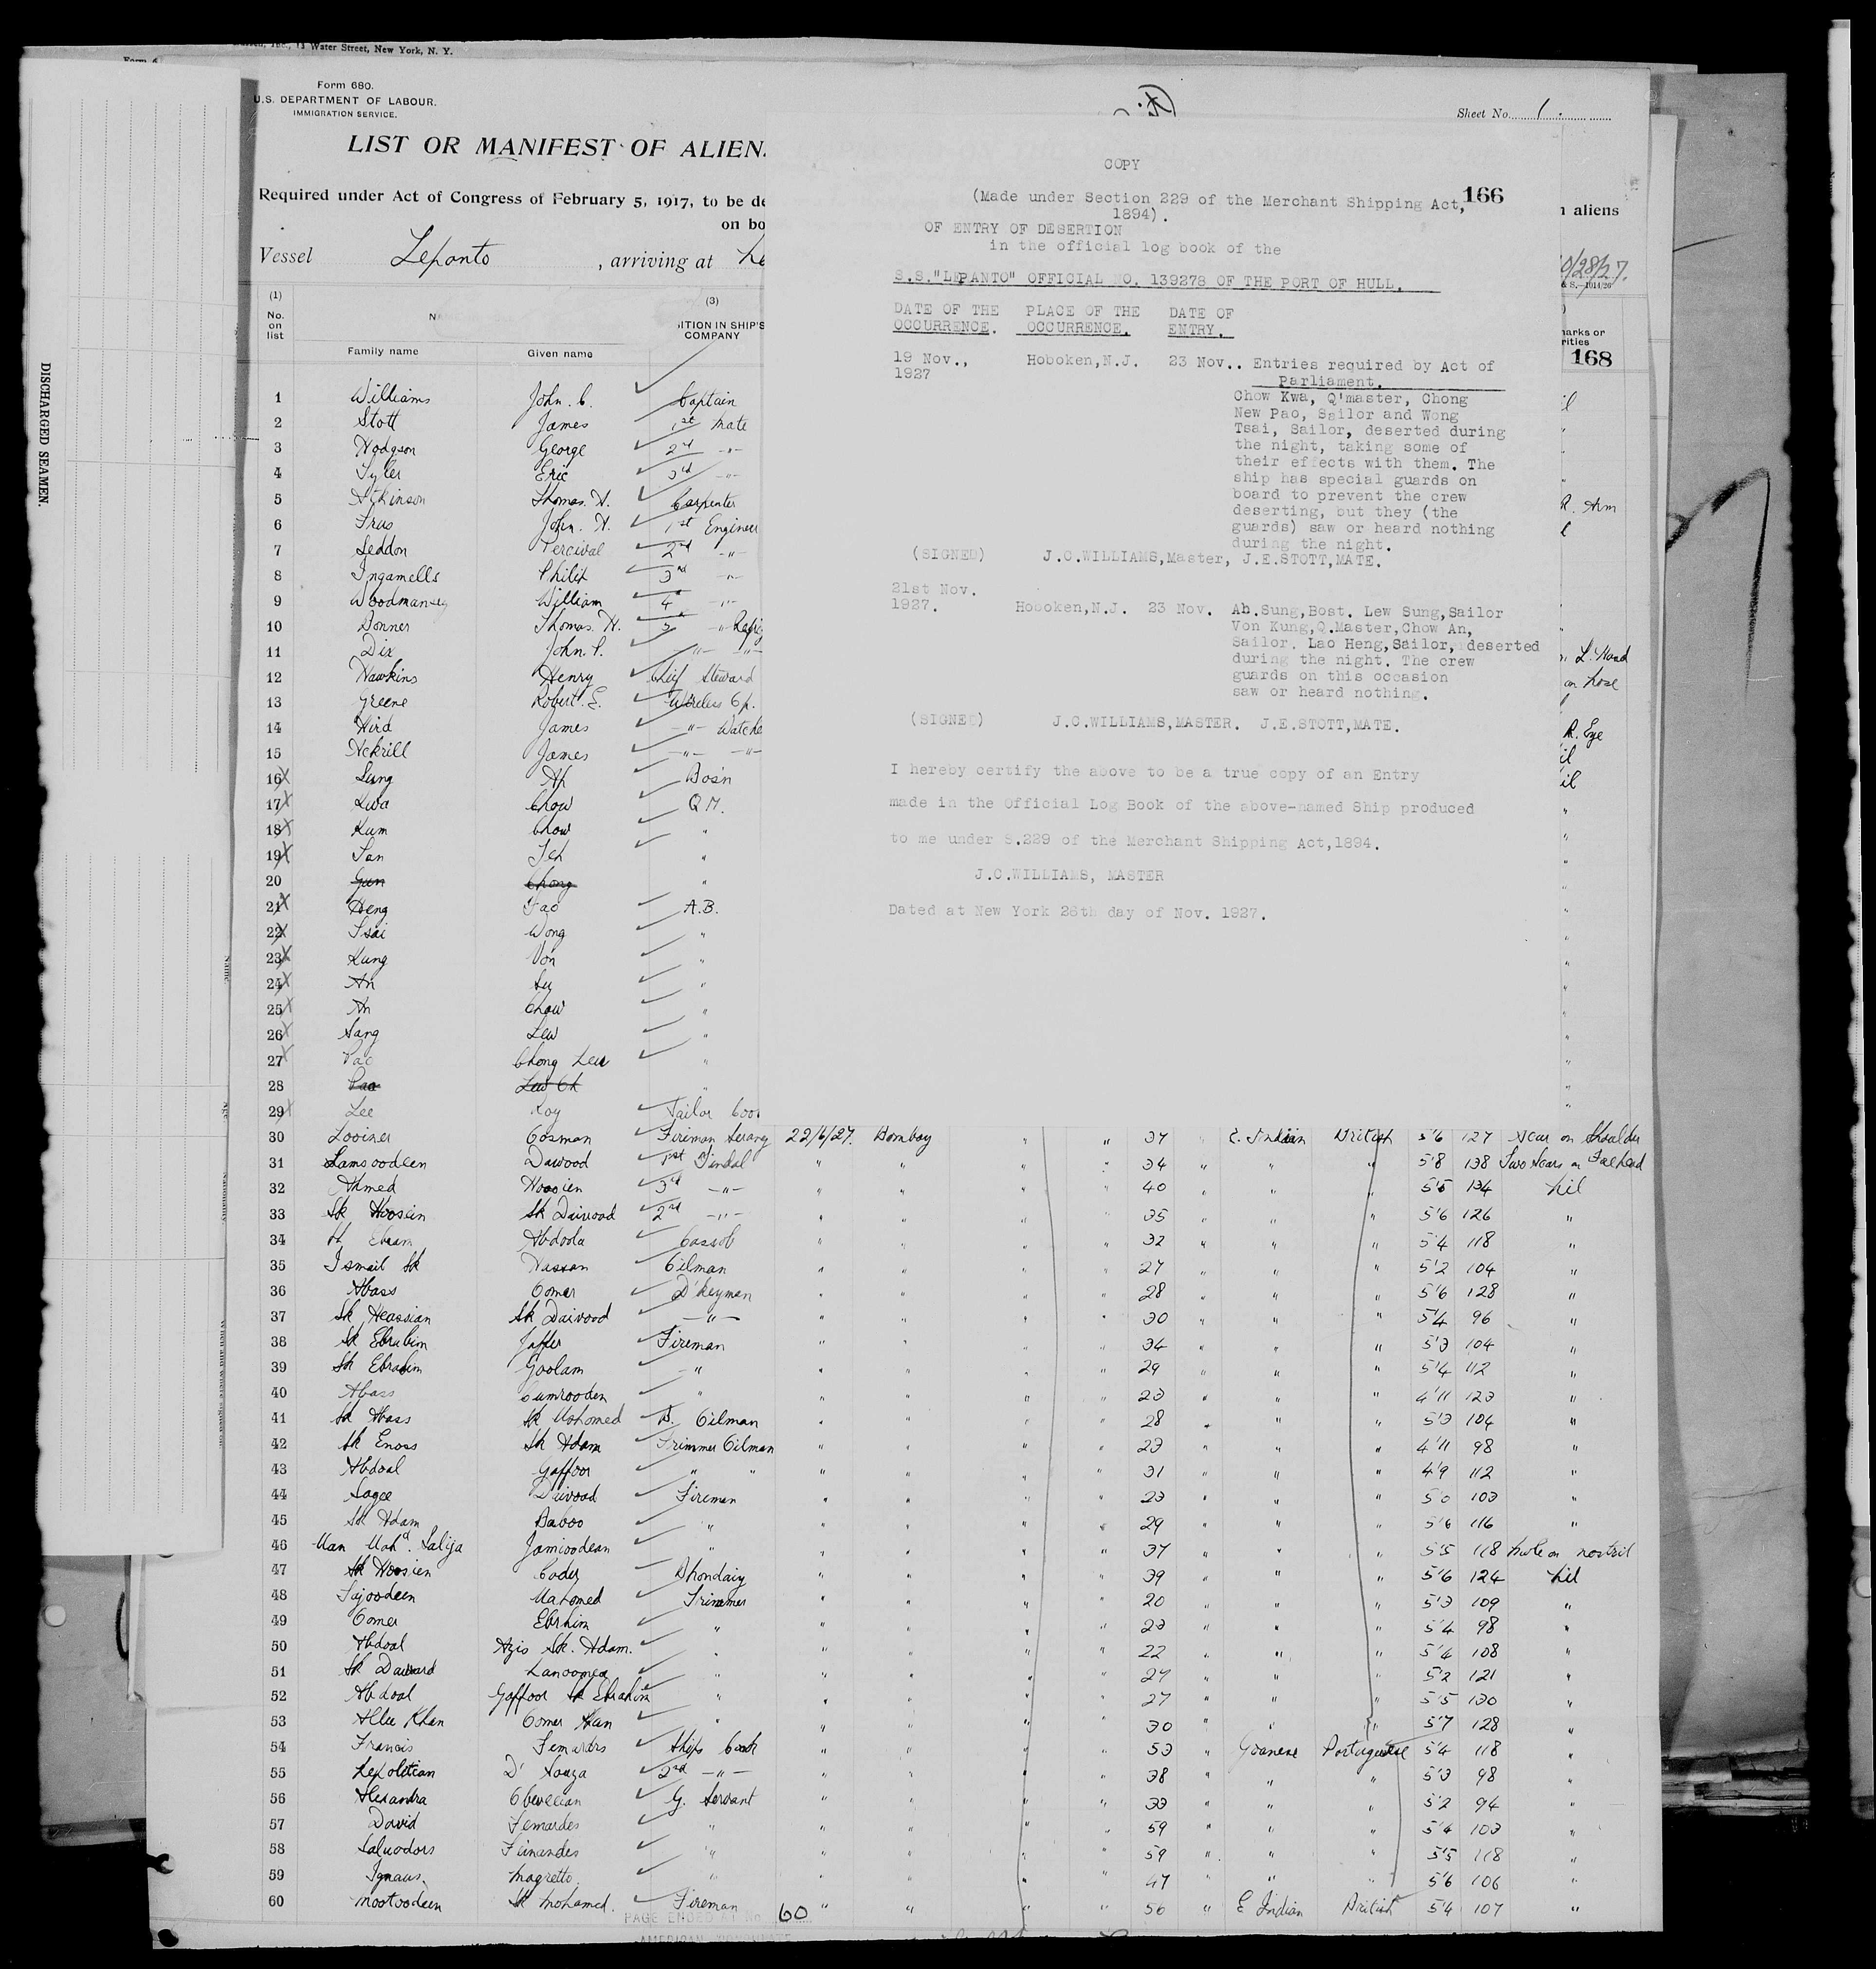 13 Water Street, New York, N. Y.
Form 680.
U.S. DEPARTMENT OF LABOUR.
IMMIGRATION SERVICE.
Sheet No. 1.
LIST OR MANIFEST OF ALIEN
Required under Act of Congress of February 5, 1917, to be de
on bo
n aliens
Vessel Lepanto, arriving at
0/28/27.
COPY
166
(Made under Section 229 of the Merchant Shipping Act,
1894).
OF ENTRY OF DESERTION
in the official log book of the
S.S."LEPANTO" OFFICIAL NO. 139278 OF THE PORT OF HULL.
DATE OF THE PLACE OF THE DATE OF
OCCURRENCE. OCCURRENCE. ENTRY.
19 Nov., Hoboken,N.J. 23 Nov.. Entries required by Act of
1927 Parliament.
Chow Kwa, Q'master, Chong
New Pao, Sailor and Wong
Tsai, Sailor, deserted during
the night, taking some of
their effects with them. The
ship has special guards on
board to prevent the crew
deserting, but they (the
guards) saw or heard nothing
during the night.
(SIGNED) J.C.WILLIAMS,Master, J.E.STOTT,MATE.
21st Nov.
1927. Hoboken,N.J. 23 Nov. Ah.Sung,Bost. Lew Sung,Sailor
Von Kung,Q.Master,Chow An,
Sailor. Lao Heng,Sailor, deserted
during the night. The crew
guards on this occasion
saw or heard nothing.
(SIGNED) J.C.WILLIAMS,MASTER. J.E.STOTT,MATE.
I hereby certify the above to be a true copy of an Entry
made in the Official Log Book of the above-named Ship produced
to me under S.229 of the Merchant Shipping Act,1894.
J.C.WILLIAMS, MASTER
Dated at New York 26th day of Nov. 1927.
168
(1) (3)
No. on list
ITION IN SHIP'S
COMPANY
Family name Given name
1 Williams John. C. Captain
2 Stott James 1st Mate
3 Hodgson George 2nd -"-
4 Tyler Eric 3rd -"-
5 Atkinson Thomas. H. Carpenter
6 John. H. 1st Engineer
7 Seddon Percival 2nd -"-
8 Ingamells Philip 3rd -"-
9 Woodmansey William 4th -"-
10 Donner Thomas. H.
11 Dix John. P. -"- -"-
12 Hawkins Henry Chief Steward
13 Greene Robert. E. Wireless Op.
14 Hird James -"- Watche
15 Ackrill James -"- -"-
16 Sung Ah Bos'n
17 Kwa Chow Q M.
18 Kum Chow "
19 San Jeh "
20 Gun Chong "
21 Heng A.B.
22 Tsai Wong "
23 Kung Von "
24 Ah Su "
25 An Chow "
26 Sang Lew "
27 Pao Chong Lew "
28 Pao Lew Ch "
29 Lee Koy
30 Cosman Fireman Serang 22/6/27. Bombay " " 37 " E. Indian British 5'6 127 Scar on Shoulder
31 Samsoodeen Dawood 1st Tindal " " " " 34 " " " 5'8 138 Two Scars on Forehead
32 Ahmed Hoosien 3rd -"- " " " " 40 " " " 5'5 134 Nil
33 Sk Hoosein Sk Dawood 2nd -"- " " " " 35 " " " 5'6 126 "
34 Abdoola Cassob " " " " 32 " " " 5'4 118 "
35 Ismail Sk Hassan Oilman " " " " 27 " " " 5'2 104 "
36 Abass Oomer D'keyman " " " " 28 " " " 5'6 128 "
37 Sk Heassian Sk Daiwood -"- " " " " 30 " " " 5'4 96 "
38 Sk Ebrahim Jaffer Fireman " " " " 34 " " " 5'3 104 "
39 Sk Ebrahim Goolam -" " " " " 29 " " " 5'4 112 "
40 Abass Cumrooden " " " " " 23 " " " 4'11 123 "
41 Sk Abass Sk Mohomed D. Oilman " " " " 28 " " " 5'3 104 "
42 Sk Enoss Sk Adam Trimmer Oilman " " " " 23 " " " 4'11 98 "
43 Abdoal Gaffoor " " " " " " 31 " " " 4'9 112 "
44 Sagee Daiwood Fireman " " " " 23 " " " 5'0 103 "
45 Sk Adam Baboo " " " " " 29 " " " 5'6 116 "
46 Jamioodean " " " " " 37 " " " 5'5 118 hole on nostril
47 Sk Hoosien Cader Bhondary " " " " 39 " " " 5'6 124 Nil
48 Tajoodeen Mahomed Trimmer " " " " 20 " " " 5'3 109 "
49 Oomer Ebrhim " " " " " 23 " " " 5'4 98 "
50 Abdoal Azis Sk. Adam. " " " " " 22 " " " 5'4 108 "
51 Sk Dawood " " " " " 27 " " " 5'2 121 "
52 Abdoal Gaffoor Sk Ebrahim " " " " " 27 " " " 5'5 130 "
53 Allie Khan Oomer Khan " " " " " 30 " " " 5'7 128 "
54 Francis Fernandes Ships Cook " " " " 53 " Goanese Portuguese 5'4 118 "
55 D' Souza 2nd -"- " " " " 38 " " " 5'3 98 "
56 Alexandra G. Servant " " " " 33 " " " 5'2 94 "
57 David Fernandes " " " " " 59 " " " 5'4 103 "
58 Salvodors Fernandes " " " " " 59 " " " 5'5 118 "
59 Ignaus. Magretto. " " " " " 47 " " " 5'6 106 "
60 Mootoodeen Sk Mohamed. Fireman " " " " 56 " E Indian British 5'4 107 "
PAGE ENDED AT No. 60
AMERICAN CONSULATE
DISCHARGED SEAMEN.